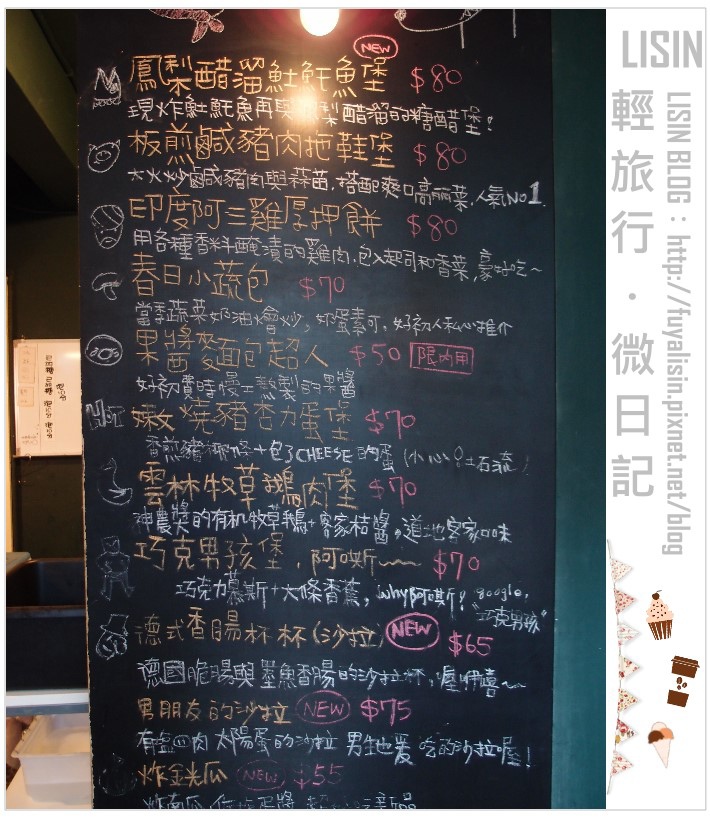 NEW
鳳梨醋溜魠魠魚堡 $80
現炸魠魠魚再與鳳梨醋溜的糖醋堡!
板煎鹹豬肉拖鞋堡 $80
大火炒鹹豬肉與蒜苗,搭配爽口高麗菜,人氣NO1
印度阿三雞厚押餅 $80
用各種香料醃漬的雞肉,包入起司和香菜,豪好吃~
春日小蔬包 $70
當季蔬菜奶油燴炒,奶蛋素可,好初人私心推介
果醬麥面包超人 $50 限內用
好初費時慢工熬製的果醬
HOT
嫩燒豬杏力蛋堡 $70
香煎豬柳條+包了CHEESE的蛋(小心土石流!
雲林牧草鵝肉堡 $70
神農獎的有机牧草鵝+客家桔醬,道地客家口味
巧克男孩堡,阿喫斯~~ $70
巧克力慕斯+大條香蕉,why阿喫斯?google,
"巧克男孩"
德式香腸杯杯(沙拉) NEW $65
德國脆腸與墨魚香腸的沙拉杯,屋呼嘻~~
男朋友的沙拉 NEW $75
有鹽四肉 太陽蛋的沙拉 男生也愛吃的沙拉喔!
炸金光瓜 NEW $55
炸南瓜
LISIN
輕旅行.微日記
LISIN BLOG : http://fuyalisin.pixnet.net/blog